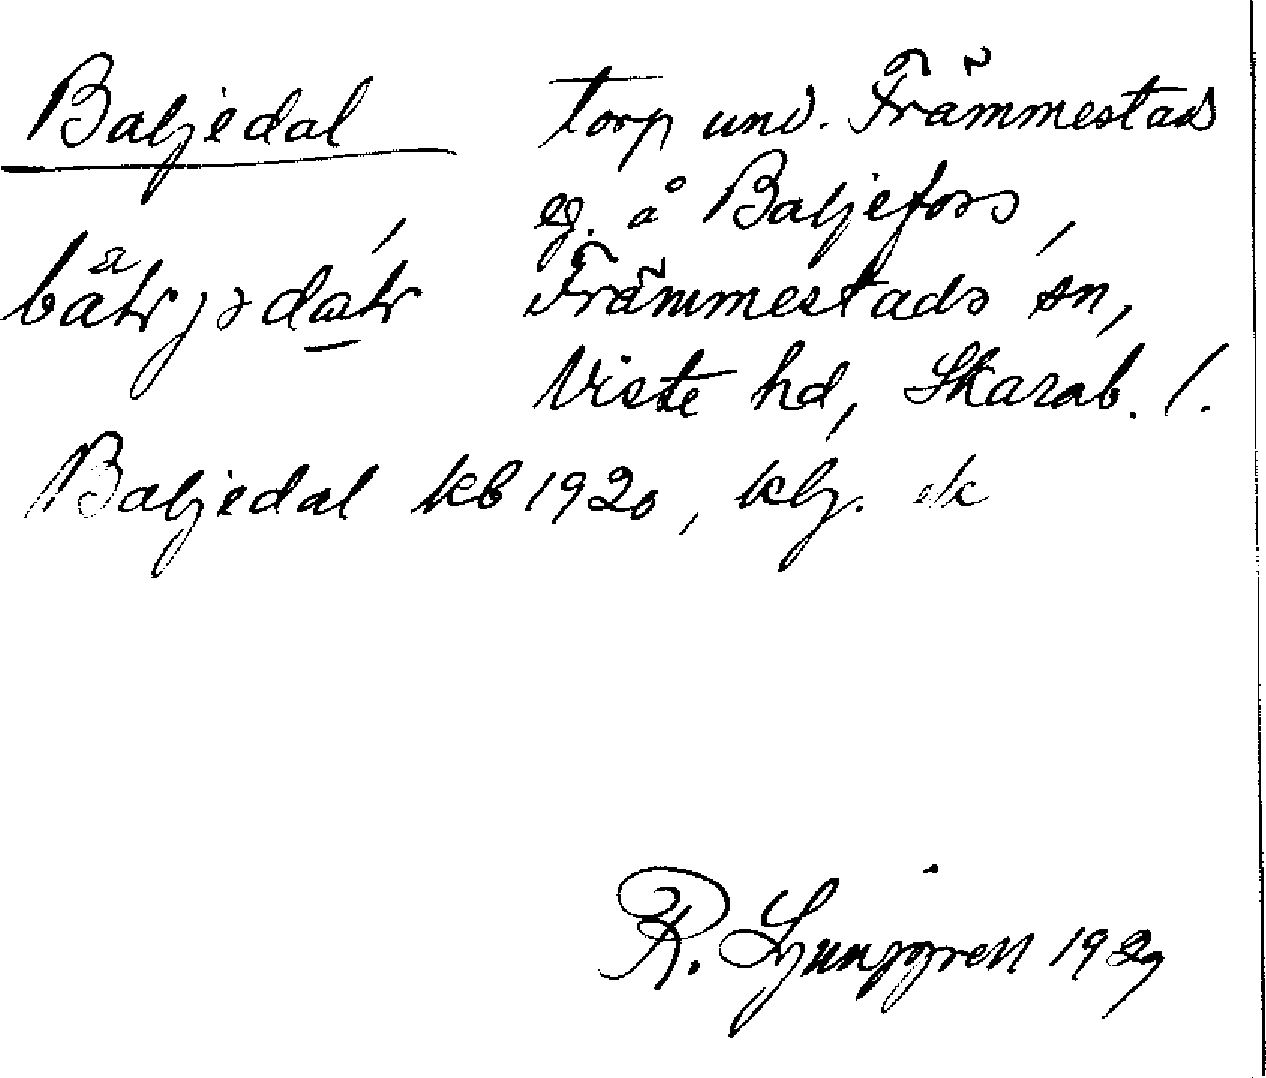 Baljedal torp und. Främmestads
eg. å Baljefors,
Främmestads sn,
Viste hd, Skarab. l.
Baljedal kb 1920, klj. ek
R. Ljunggren 1929